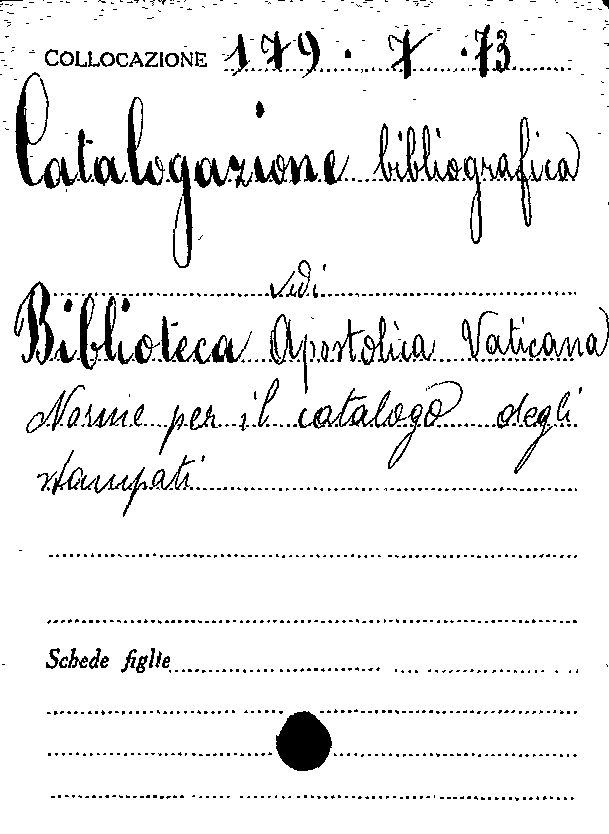 COLLOCAZIONE 179 . 7 . 73
Catalogazione bibliografica
vedi
Biblioteca Apostolica Vaticana
Norme per il catalogo degli
stampati
Schede figlie